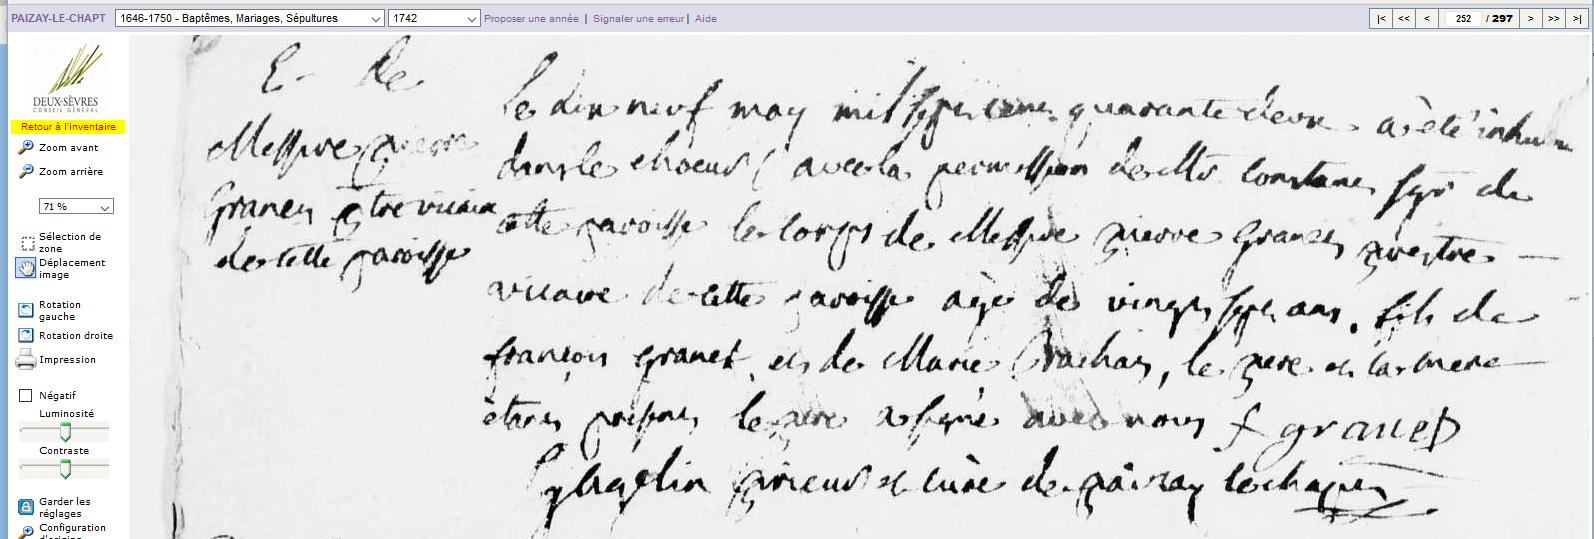 PAIZAY-LE-CHAPT
1646-1750 - Baptêmes, Mariages, Sépultures
1742
Proposer une année | Signaler une erreur | Aide
|< << < 252 / 297 > >> >|
DEUX-SÈVRES
CONSEIL GÉNÉRAL
Retour à l'inventaire
Zoom avant
Zoom arrière
71 %
Sélection de
zone
Déplacement
image
Rotation
gauche
Rotation droite
Impression
Négatif
Luminosité
Contraste
Garder les
réglages
Configuration
d'origine
E de
Messire pierre
Granet vicaire
de cette paroisse
le dix neuf may mil sept cent quarante deux a été inhumé
dans le choeur avec la permission de Mr constant sgr de
cette paroisse le corps de Messire pierre Granet prestre
vicaire de cette paroisse âgé de vingt sept ans, fils de
françois granet, et de Marie, le pere et la mere
étant présens le pere a signé avec nous f granet
prieur et curé de paizay lechapt